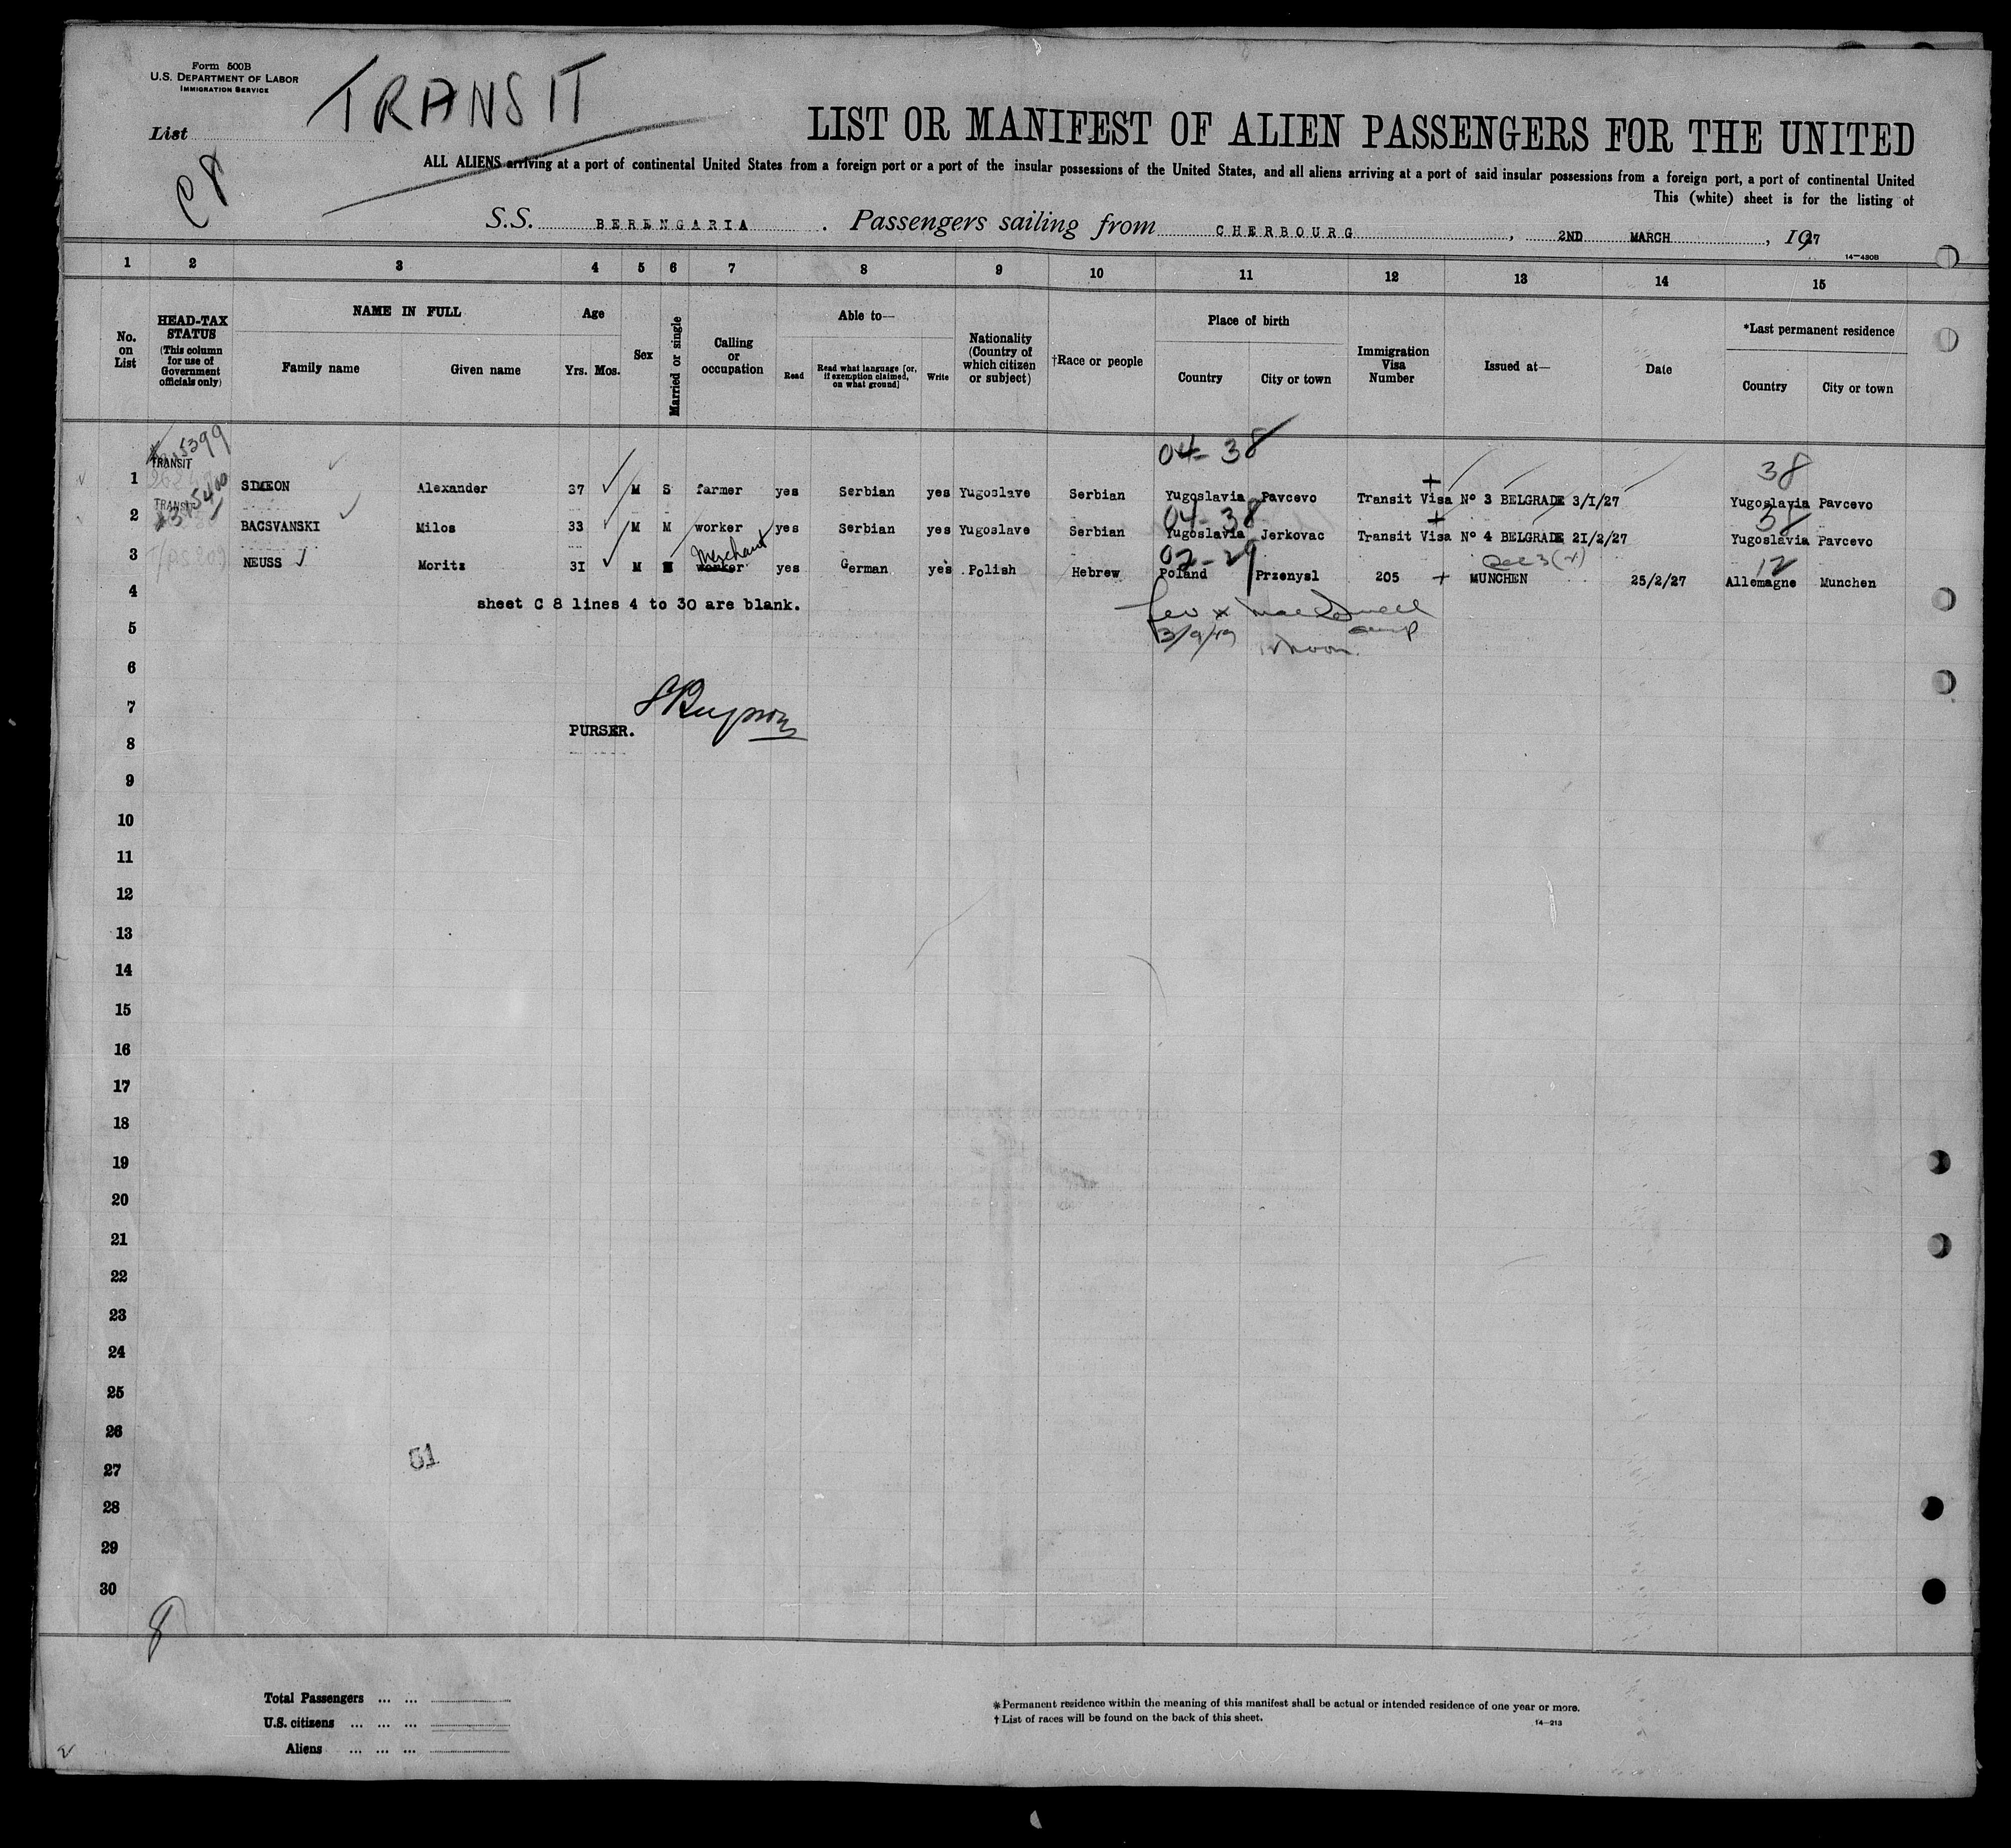 Form 500B
U.S. DEPARTMENT OF LABOR
IMMIGRATION SERVICE
TRANSIT
List
C8
LIST OR MANIFEST OF ALIEN PASSENGERS FOR THE UNITED
ALL ALIENS arriving at a port of continental United States from a foreign port or a port of the insular possessions of the United States, and all aliens arriving at a port of said insular possessions from a foreign port, a port of continental United
This (white) sheet is for the listing of
S.S. BERENGARIA . Passengers sailing from CHERBOURG , 2ND MARCH , 1927
14—430B
1 2 3 4 5 6 7 8 9 10 11 12 13 14 15
No. on List
HEAD-TAX STATUS
(This column for use of Government officials only)
NAME IN FULL
Family name
Given name
Age
Yrs. Mos.
Sex
Married or single
Calling or occupation
Able to—
Read
Read what language [or, if exemption claimed, on what ground]
Write
Nationality (Country of which citizen or subject)
†Race or people
Place of birth
Country
City or town
Immigration Visa Number
Issued at—
Date
*Last permanent residence
Country
City or town
5399
04-38 38
1 TRANSIT SIMEON Alexander 37 M S farmer yes Serbian yes Yugoslave Serbian Yugoslavia Pavcevo Transit Visa Nº 3 BELGRADE 3/I/27 Yugoslavia Pavcevo
5400
04-38 38
2 TRANSIT BACSVANSKI Milos 33 M M worker yes Serbian yes Yugoslave Serbian Yugoslavia Jerkovac Transit Visa Nº 4 BELGRADE 2I/2/27 Yugoslavia Pavcevo
Merchant 02-29 12
3 NEUSS Moritz 3I M worker yes German yes Polish Hebrew Poland Przenysl 205 MUNCHEN 25/2/27 Allemagne Munchen
4 sheet C 8 lines 4 to 30 are blank.
5
6
7
PURSER.
8
9
10
11
12
13
14
15
16
17
18
19
20
21
22
23
24
25
26
51
27
28
29
30
8
Total Passengers ... ...
U.S. citizens ... ... ...
Aliens ... ... ...
*Permanent residence within the meaning of this manifest shall be actual or intended residence of one year or more.
†List of races will be found on the back of this sheet.
14—213